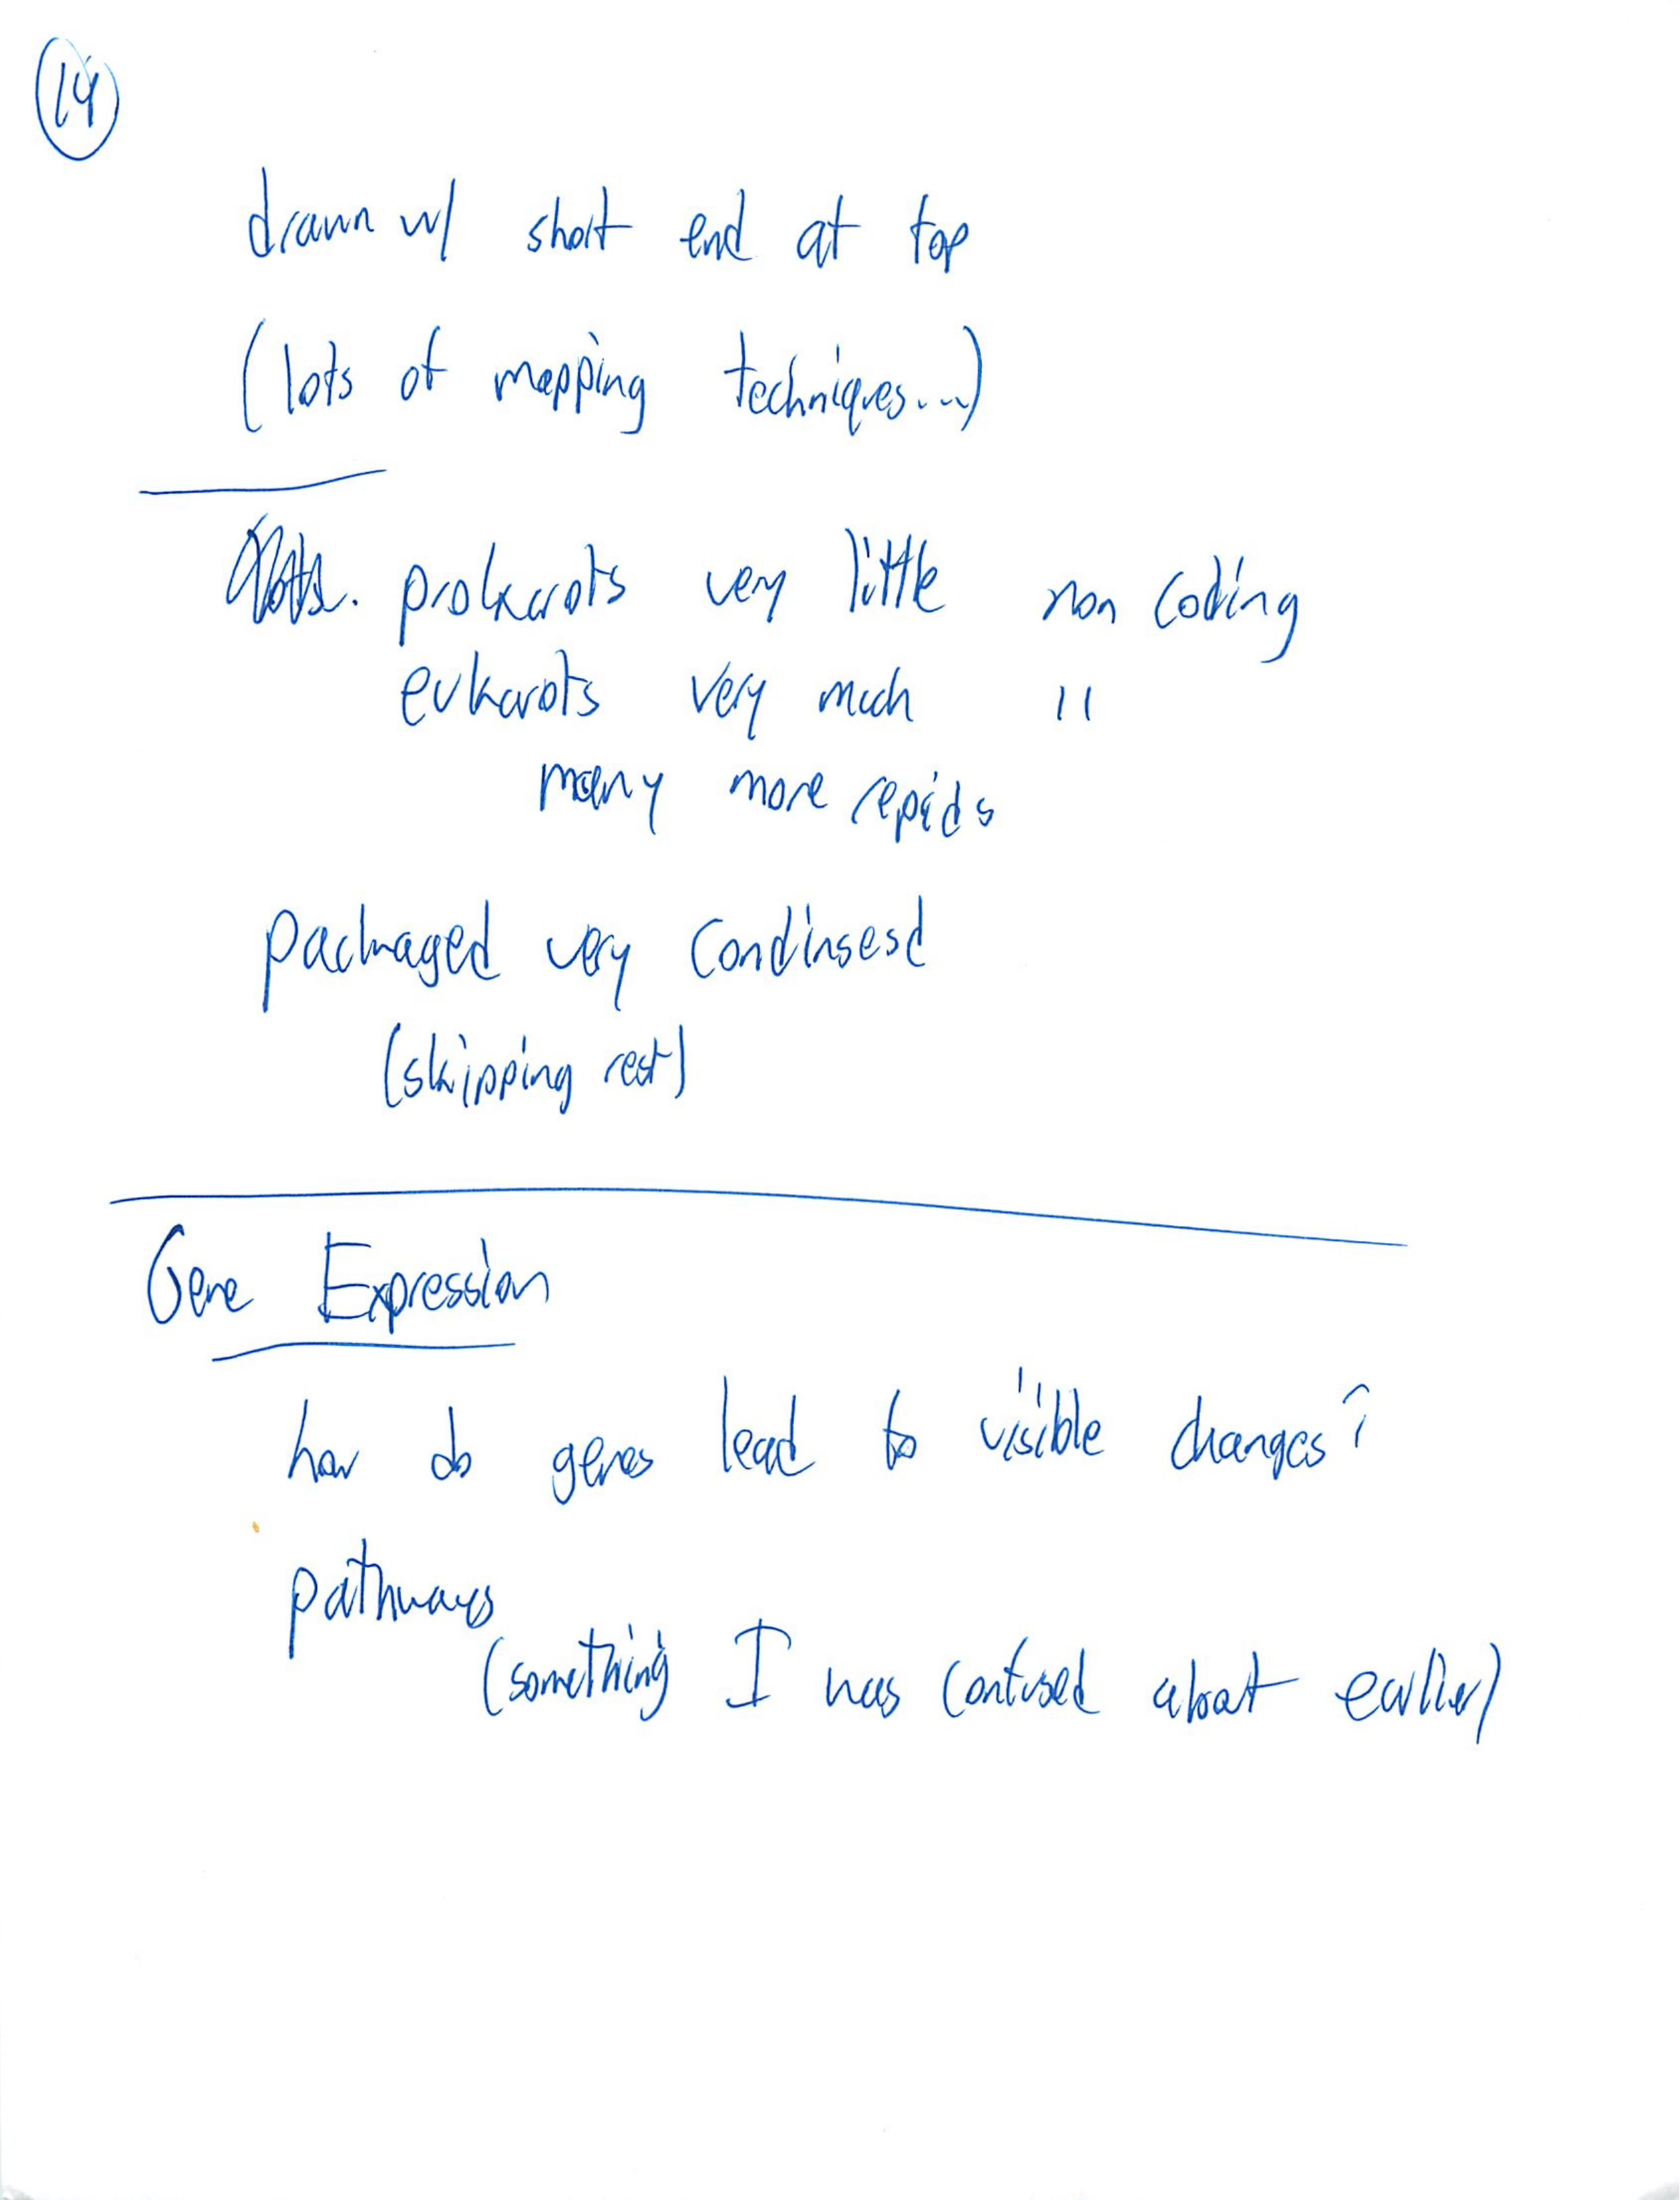 14
drawn w/ short end at top
(lots of mapping techniques...)
prokarots very little non coding
eukarots very much "
many more repids
packaged very condinsesd
(skipping rest)
Gene Expression
how do genes lead to visible changes?
pathways
(something I was confused about earlier)